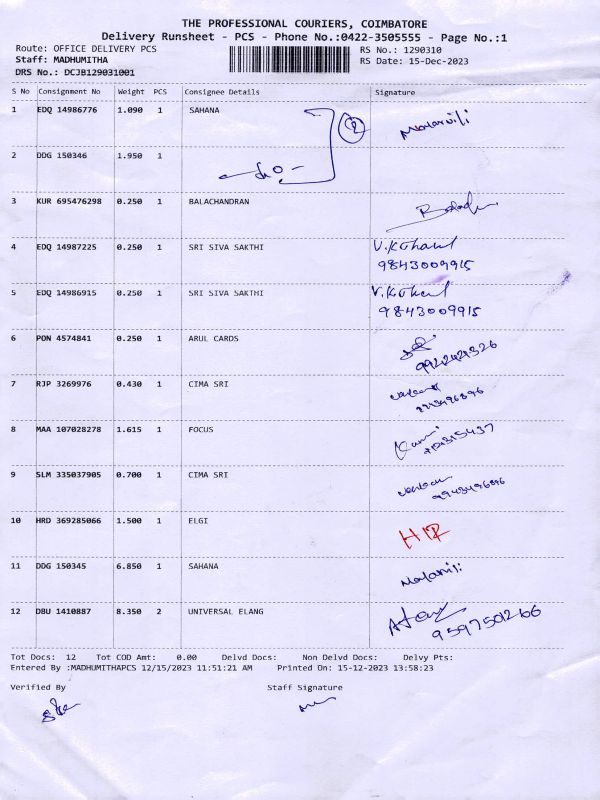 THE PROFESSIONAL COURIERS, COIMBATORE
Delivery Runsheet - PCS - Phone No.:0422-3505555 - Page No.:1
Route: OFFICE DELIVERY PCS RS No.: 1290310
Staff: MADHUMITHA RS Date: 15-Dec-2023
DRS No.: DCJB129031001
S No Consignment No Weight PCS Consignee Details Signature
1 EDQ 14986776 1.090 1 SAHANA 2 Malarvili
2 DDG 150346 1.950 1 -do-
3 KUR 695476298 0.250 1 BALACHANDRAN
4 EDQ 14987225 0.250 1 SRI SIVA SAKTHI
9843009915
5 EDQ 14986915 0.250 1 SRI SIVA SAKTHI
9843009915
6 PON 4574841 0.250 1 ARUL CARDS
7 RJP 3269976 0.430 1 CIMA SRI
8 MAA 107028278 1.615 1 FOCUS
9 SLM 335037905 0.700 1 CIMA SRI
10 HRD 369285066 1.500 1 ELGI
11 DDG 150345 6.850 1 SAHANA
12 DBU 1410887 8.350 2 UNIVERSAL ELANG
Tot Docs: 12 Tot COD Amt: 0.00 Delvd Docs: Non Delvd Docs: Delvy Pts:
Entered By :MADHUMITHAPCS 12/15/2023 11:51:21 AM Printed On: 15-12-2023 13:58:23
Verified By Staff Signature